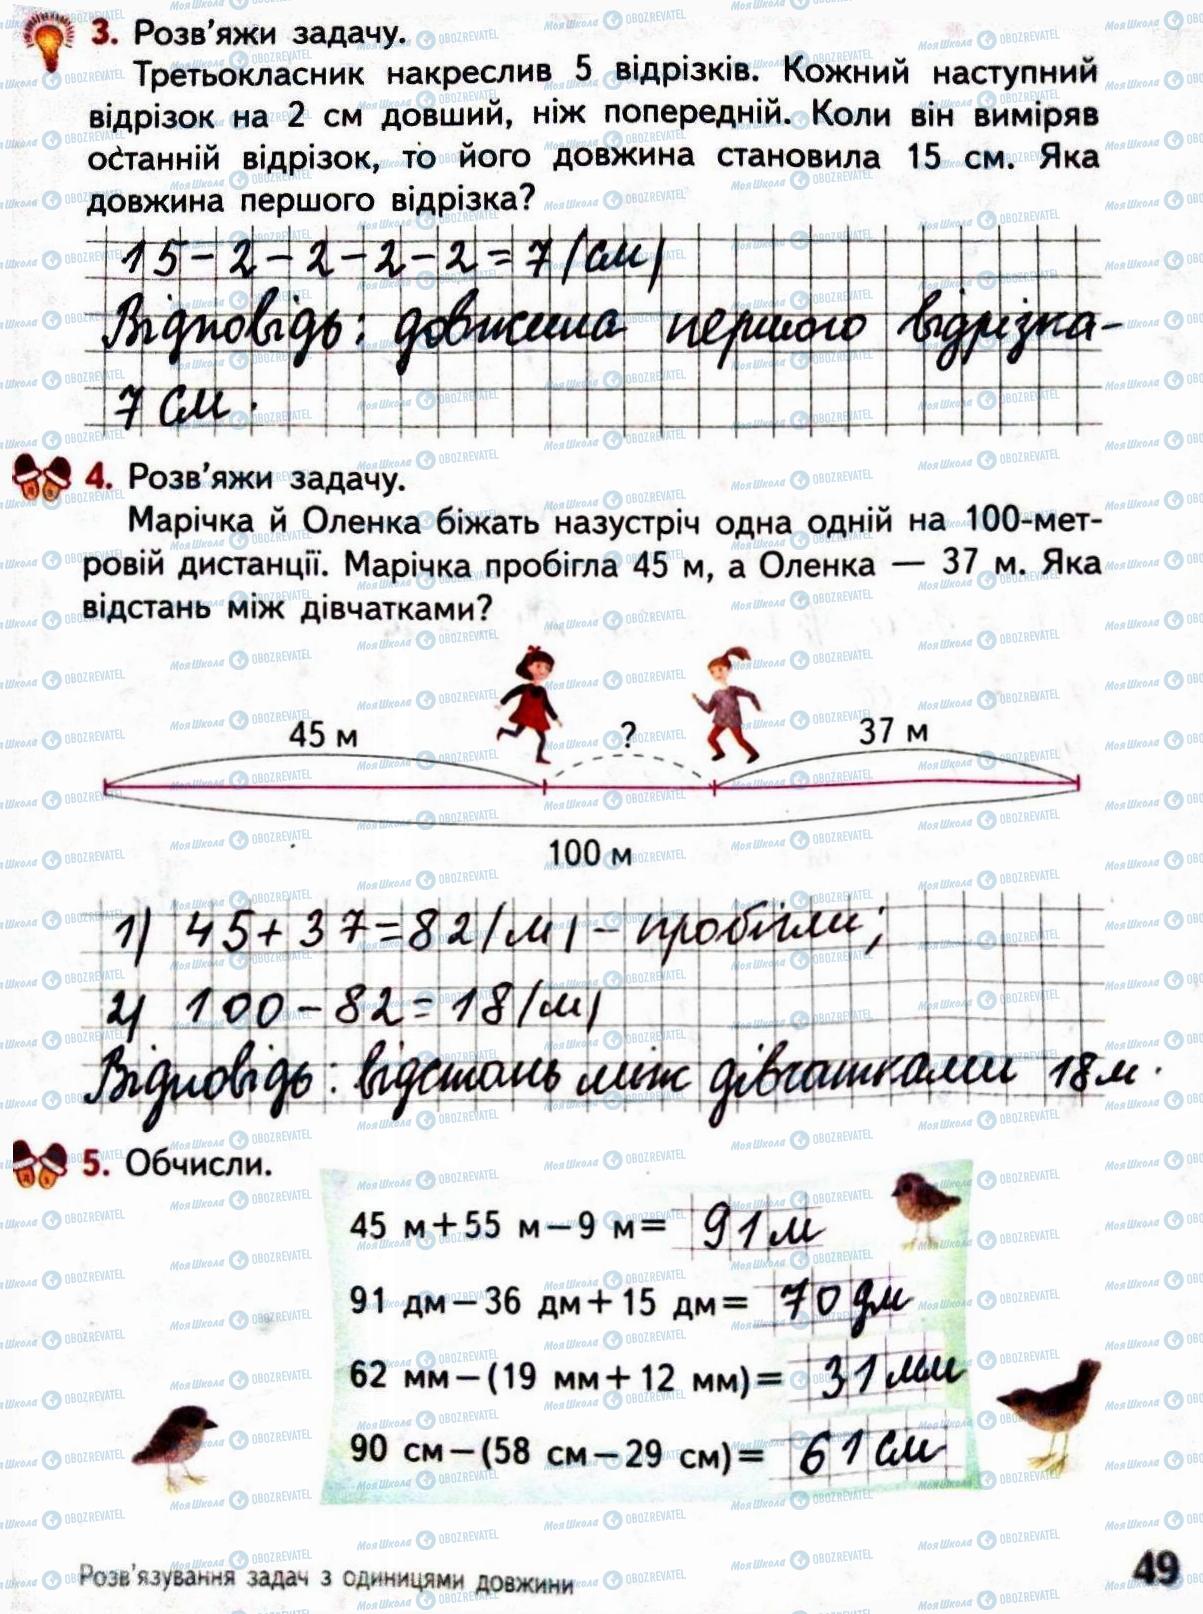 3. Розв'яжи задачу.
Третьокласник накреслив 5 відрізків. Кожний наступний
відрізок на 2 см довший, ніж попередній. Коли він виміряв
останній відрізок, то його довжина становила 15 см. Яка
довжина першого відрізка?
15-2-2-2-2=7(см)
Відповідь: довжина першого відрізка-
7 см.
4. Розв'яжи задачу.
Марічка й Оленка біжать назустріч одна одній на 100-мет-
ровій дистанції. Марічка пробігла 45 м, а Оленка — 37 м. Яка
відстань між дівчатками?
45 м ? 37 м
100 м
1) 45+37=82(м)-пробігли;
2) 100-82=18(м)
Відповідь: відстань між дівчатками 18 м.
5. Обчисли.
45 м+55 м-9 м= 91 м
91 дм-36 дм+15 дм= 70 дм
62 мм-(19 мм+12 мм)= 31 мм
90 см-(58 см-29 см)= 61 см
Розв'язування задач з одиницями довжини
49
МояШкола OBOZREVATEL